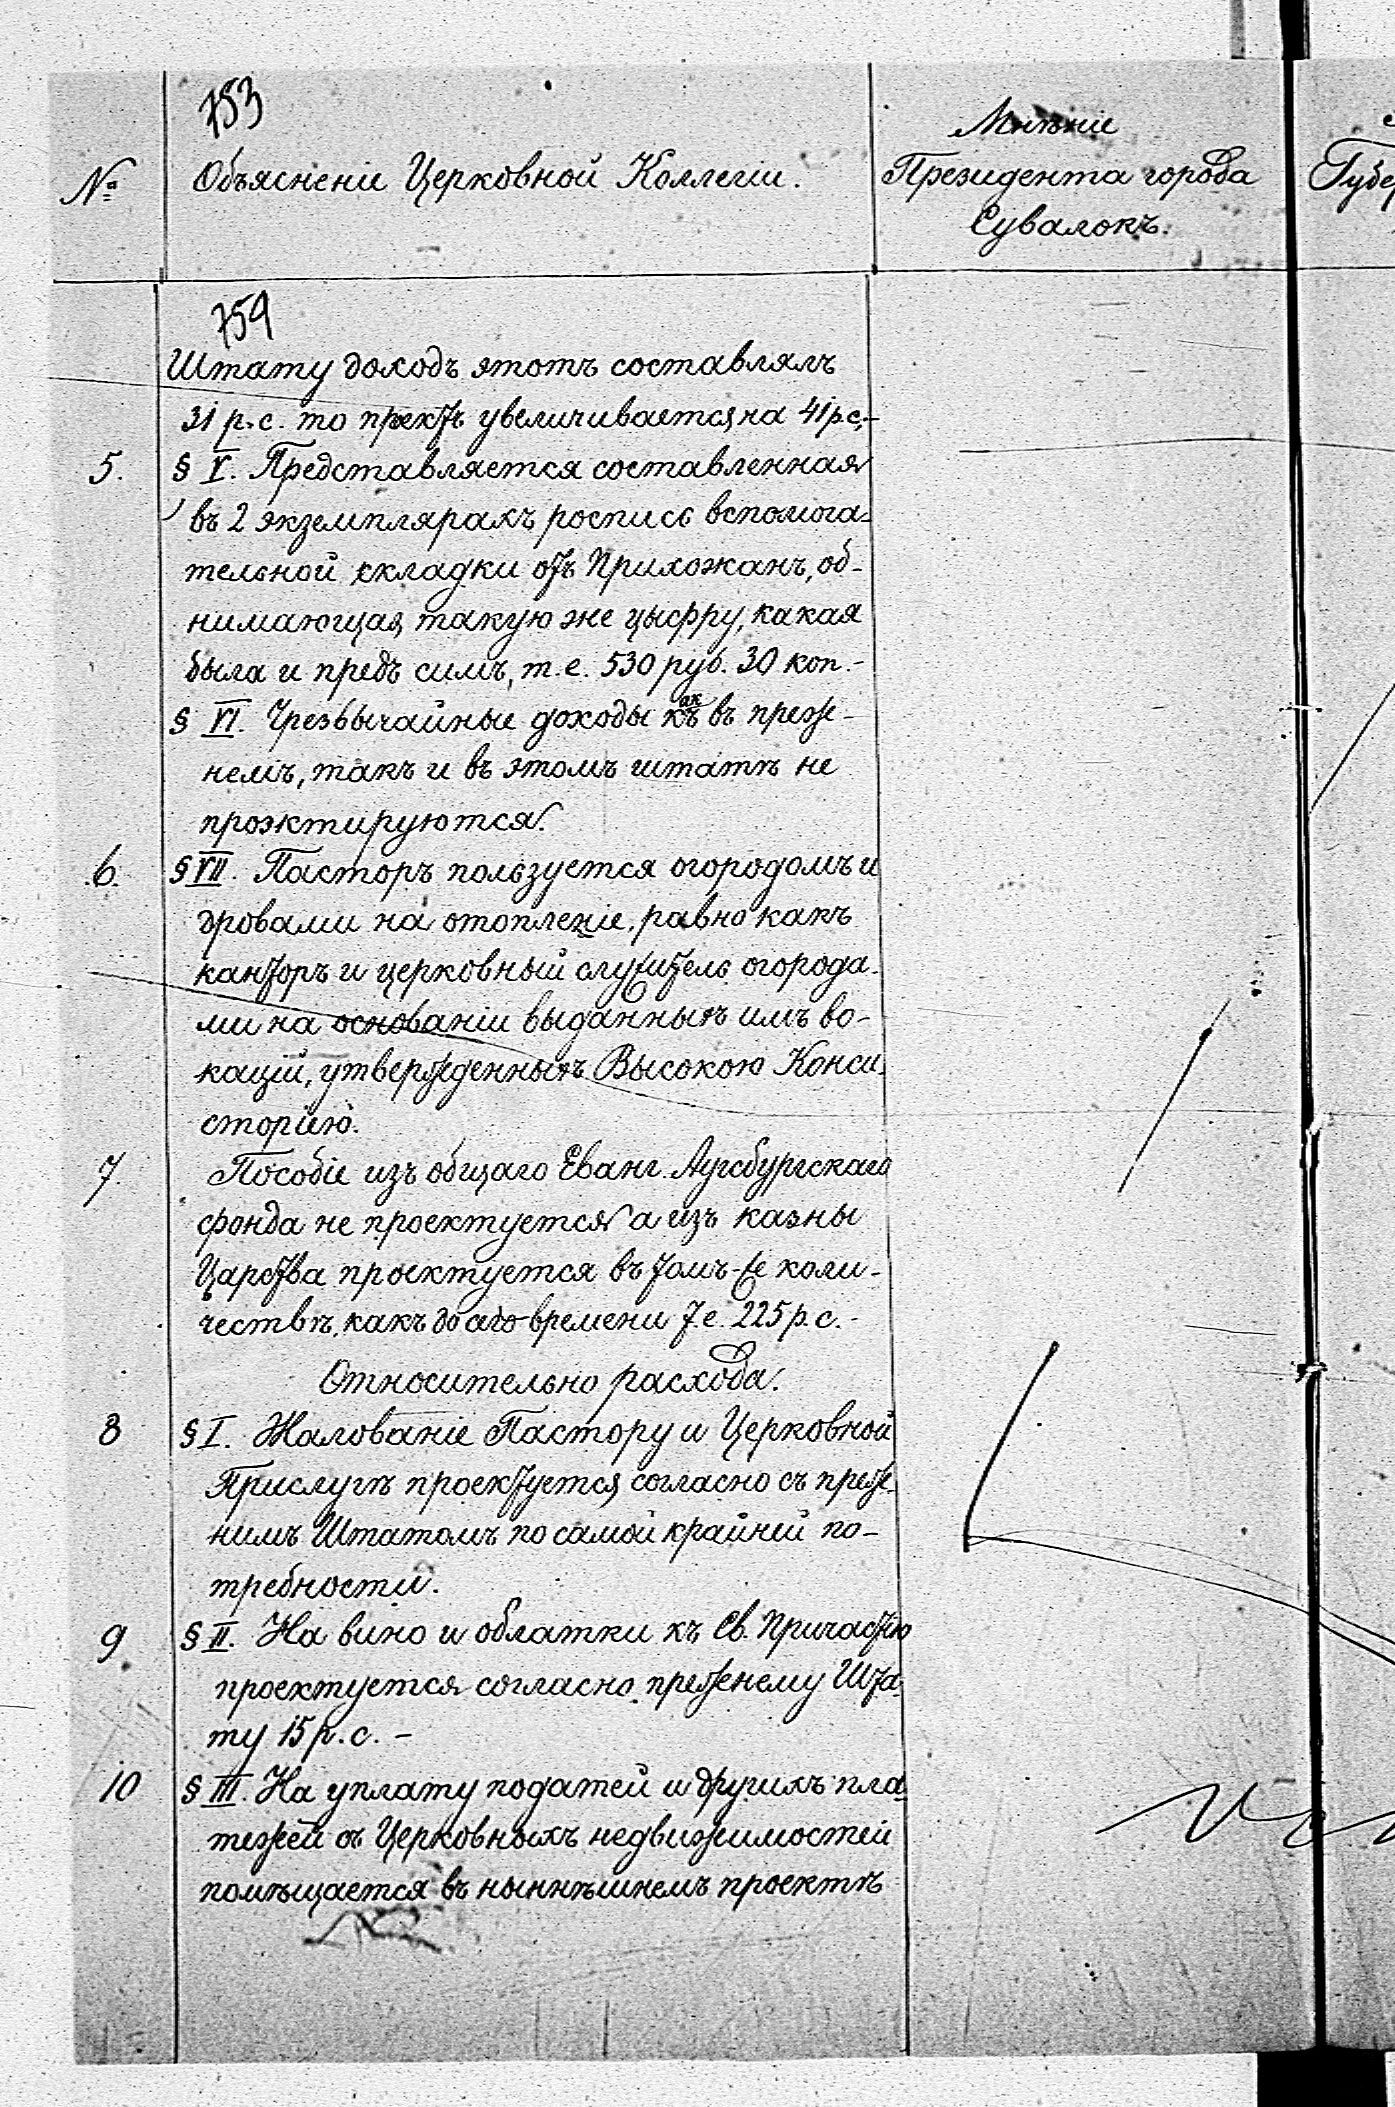 753
№
Объясненіе Церковной Коллегіи.
Мнѣніе
Президента города
Сувалокъ.
Губер
754
Штату доходъ этотъ составлялъ
31 р. с. то проектъ увеличивается на 41 р с.-
5. § V. Представляется составленная
въ 2 экземплярахъ роспись вспомога-
тельной складки отъ Прихожанъ, об-
нимающая такую же цыфру, какая
была и предъ симъ, т. е. 530 руб. 30 коп.-
§ VI. Чрезвычайные доходы какъ въ преж-
немъ, такъ и въ этомъ штатѣ не
проэктируются.
6. § VII. Пасторъ пользуется огородомъ и
дровами на отопленіе, равно какъ
канторъ и церковный служитель огорода-
ми на основаніи выданныхъ имъ во-
кацій, утвержденныхъ Высокою Конси-
сторіею.
7. Пособіе изъ общаго Еванг. Аугсбургскаго
фонда не проектуется а изъ казны
Царства проектуется въ томъ-же коли-
чествѣ, какъ до сего времени т е. 225 р. с. -
Относительно расхода.
8 § I. Жалованіе Пастору и Церковной
Прислугѣ проектуется согласно съ преж-
нимъ Штатомъ по самой крайней по-
требности.
9 § II. На вино и облатки къ Св. Причастію
проектуется согласно прежнему Шта-
ту 15 р. с. -
10 § III. На уплату податей и другихъ пла-
тежей съ Церковныхъ недвижимостей
помѣщается въ нынѣшнемъ проектѣ